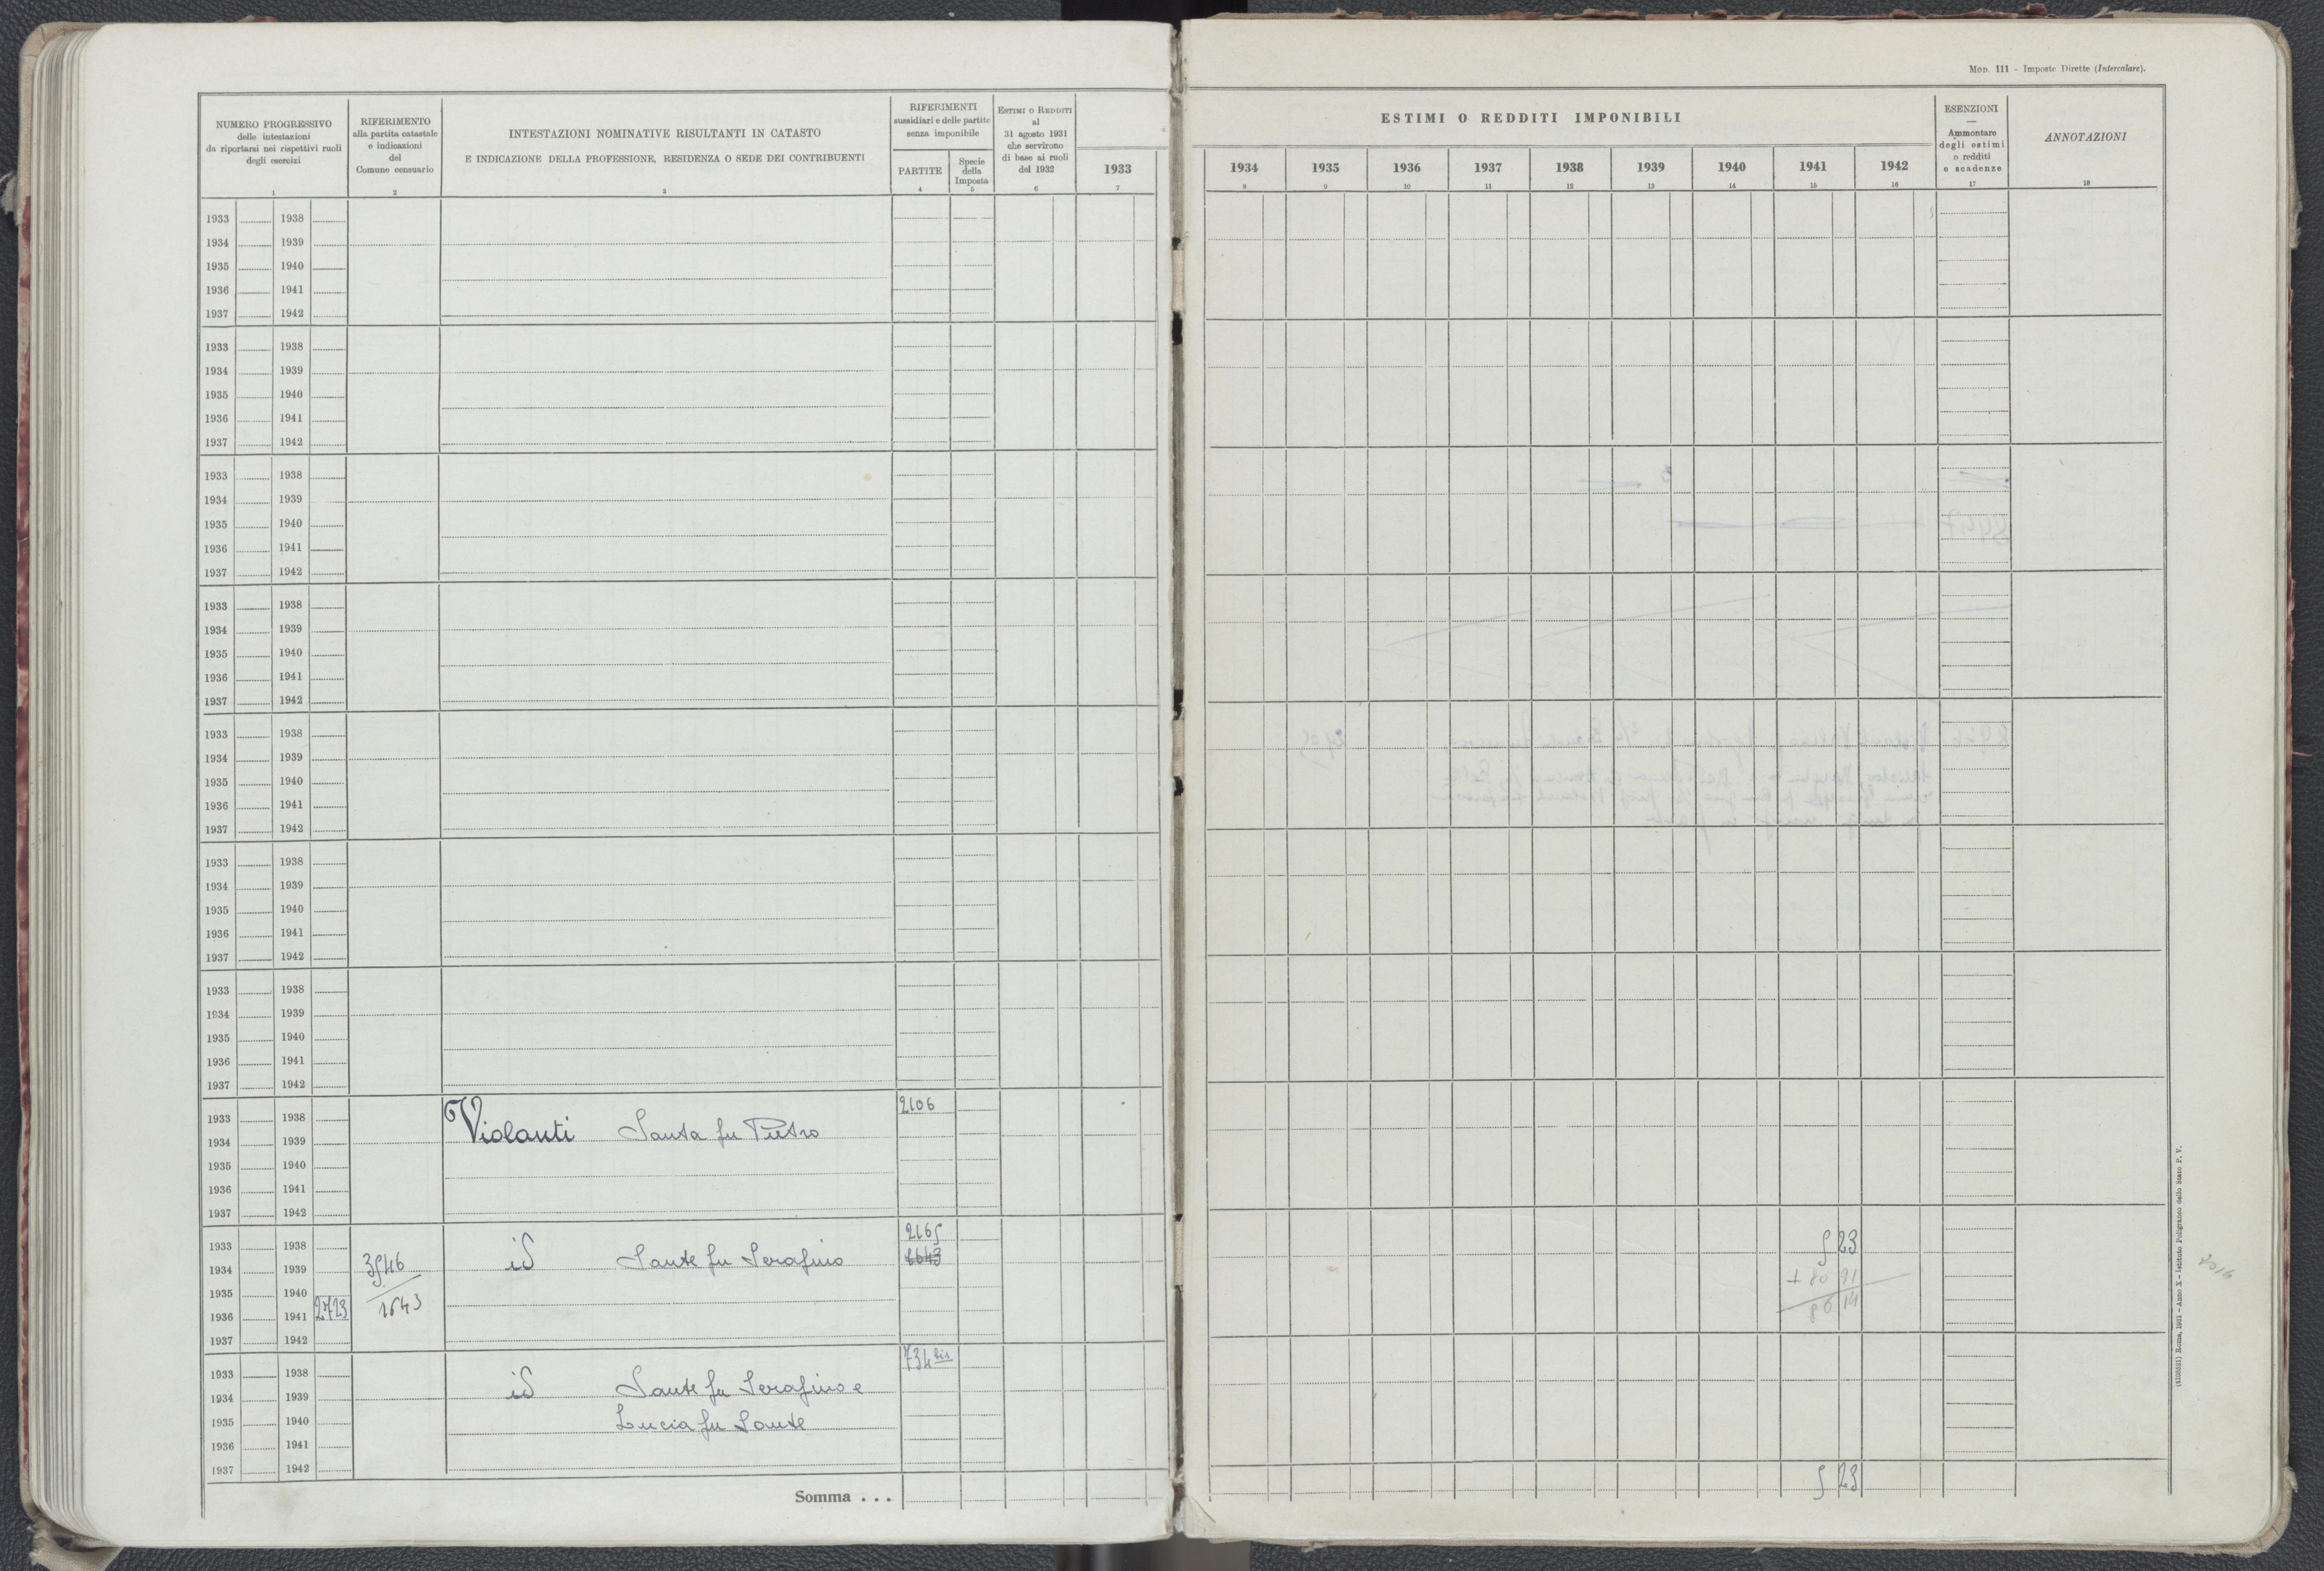 MOD. 111 - Imposte Dirette (Intercalare).
NUMERO PROGRESSIVO
delle intestazioni
da riportarsi nei rispettivi ruoli
degli esercizi
1
RIFERIMENTO
alla partita catastale
e indicazioni
del
Comune censuario
2
INTESTAZIONI NOMINATIVE RISULTANTI IN CATASTO
E INDICAZIONE DELLA PROFESSIONE, RESIDENZA O SEDE DEI CONTRIBUENTI
3
RIFERIMENTI
sussidiari e delle partite
senza imponibile
PARTITE
4
Specie
della
Imposta
5
ESTIMI O REDDITI
al
31 agosto 1931
che servirono
di base ai ruoli
del 1932
6
1933
7
ESTIMI O REDDITI IMPONIBILI
1934 1935 1936 1937 1938 1939 1940 1941 1942
8 9 10 11 12 13 14 15 16
ESENZIONI
—
Ammontare
degli estimi
o redditi
e scadenze
17
ANNOTAZIONI
18
1933 1938
1934 1939
1935 1940
1936 1941
1937 1942
1933 1938
1934 1939
1935 1940
1936 1941
1937 1942
1933 1938
1934 1939
1935 1940
1936 1941
1937 1942
1933 1938
1934 1939
1935 1940
1936 1941
1937 1942
1933 1938
1934 1939
1935 1940
1936 1941
1937 1942
1933 1938
1934 1939
1935 1940
1936 1941
1937 1942
1933 1938
1934 1939
1935 1940
1936 1941
1937 1942
1933 1938 2106
1934 1939 Violanti Santa fu Pietro
1935 1940
1936 1941
1937 1942
2165
1933 1938 id Sante fu Serafino 1643 5 23
1934 1939 3546 + 80 91
1935 1940
1936 1941 2723 1643 86 14
1937 1942
734 bis
1933 1938
1934 1939 id Sante fu Serafino e
1935 1940 Lucia fu Sante
1936 1941
1937 1942
Somma . . . 5 23
(4103521) Roma, 1931 - Anno X - Istituto Poligrafico dello Stato P. V.